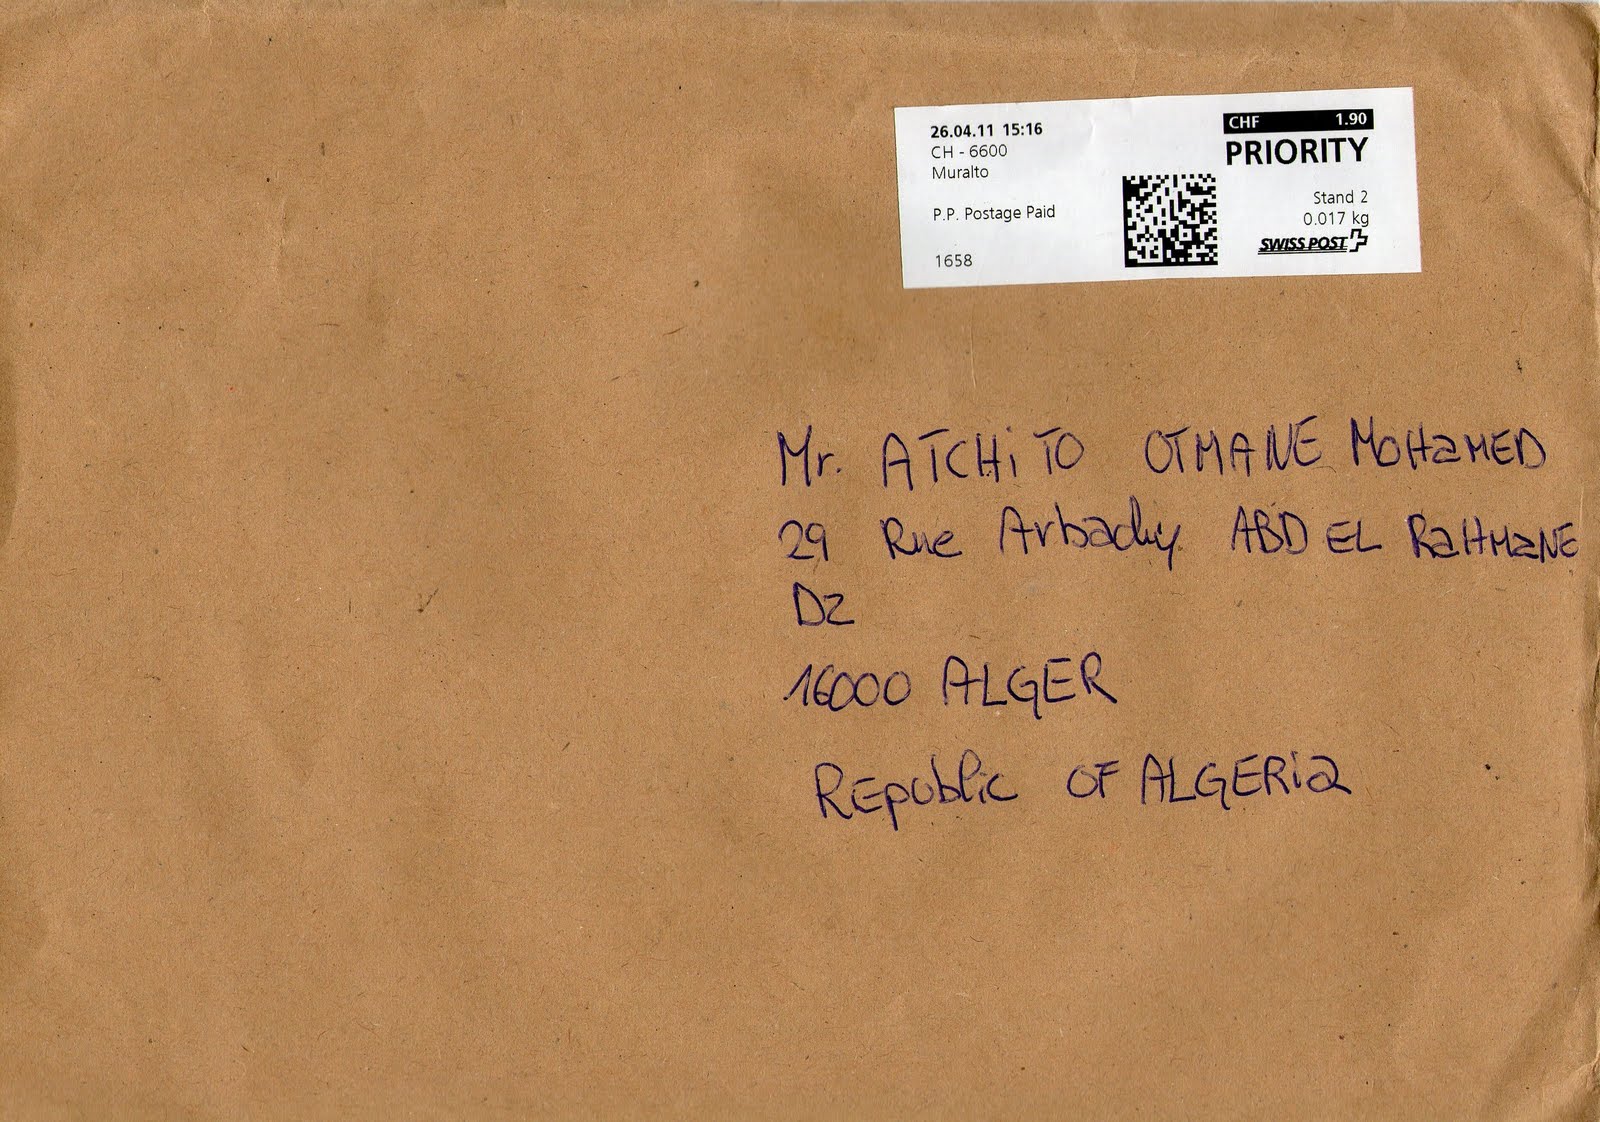 26.04.11 15:16
CH - 6600
Muralto
P.P. Postage Paid
1658
CHF 1.90
PRIORITY
Stand 2
0.017 kg
SWISS POST
Mr. ATCHiTO OTMANE MOHaMED
29 Rue Arbadiy ABD EL RaHMaNE
DZ
16000 ALGER
REpublic OF ALGERia